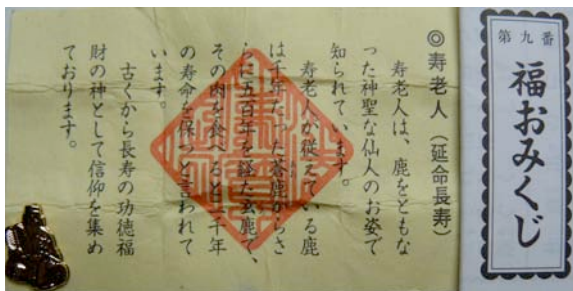 第九番
福おみくじ
◎寿老人（延命長寿）
寿老人は、鹿をともな
った神聖な仙人のお姿で
知られています。
寿老人が従えている鹿
は千年たった蒼鹿からさ
らに五百年を経た玄鹿で、
その肉を食べると二千年
の寿命を保つと言われて
います。
古くから長寿の功徳福
財の神として信仰を集め
ております。